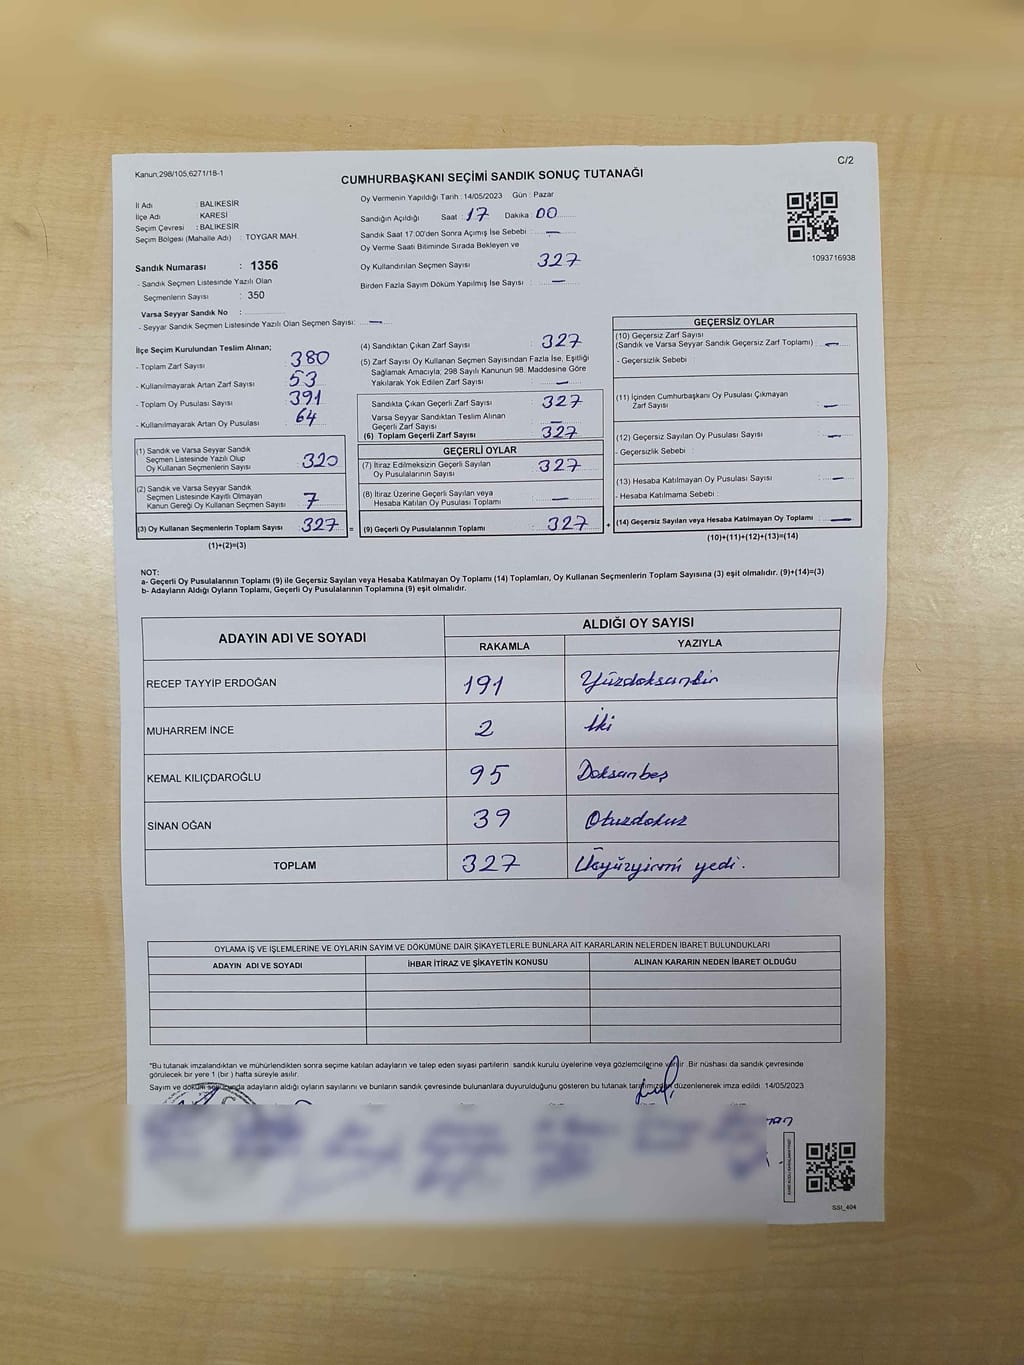 Kanun;298/105,6271/18-1
C/2
CUMHURBAŞKANI SEÇİMİ SANDIK SONUÇ TUTANAĞI
İl Adı : BALIKESİR
İlçe Adı : KARESİ
Seçim Çevresi : BALIKESİR
Seçim Bölgesi (Mahalle Adı) : TOYGAR MAH.
Sandık Numarası : 1356
- Sandık Seçmen Listesinde Yazılı Olan
Seçmenlerin Sayısı : 350
Varsa Seyyar Sandık No :
- Seyyar Sandık Seçmen Listesinde Yazılı Olan Seçmen Sayısı: —
Oy Vermenin Yapıldığı Tarih : 14/05/2023 Gün : Pazar
Sandığın Açıldığı Saat : 17 Dakika : 00
Sandık Saat 17.00'den Sonra Açımış İse Sebebi : —
Oy Verme Saati Bitiminde Sırada Bekleyen ve
Oy Kullandırılan Seçmen Sayısı : 327
Birden Fazla Sayım Döküm Yapılmış İse Sayısı : —
1093716938
İlçe Seçim Kurulundan Teslim Alınan;
- Toplam Zarf Sayısı : 380
- Kullanılmayarak Artan Zarf Sayısı : 53
- Toplam Oy Pusulası Sayısı : 391
- Kullanılmayarak Artan Oy Pusulası : 64
(1) Sandık ve Varsa Seyyar Sandık
Seçmen Listesinde Yazılı Olup
Oy Kullanan Seçmenlerin Sayısı : 320
(2) Sandık ve Varsa Seyyar Sandık
Seçmen Listesinde Kayıtlı Olmayan
Kanun Gereği Oy Kullanan Seçmen Sayısı : 7
(3) Oy Kullanan Seçmenlerin Toplam Sayısı : 327 =
(1)+(2)=(3)
(4) Sandıktan Çıkan Zarf Sayısı : 327
(5) Zarf Sayısı Oy Kullanan Seçmen Sayısından Fazla İse, Eşitliği
Sağlamak Amacıyla, 298 Sayılı Kanunun 98. Maddesine Göre
Yakılarak Yok Edilen Zarf Sayısı : —
Sandıkta Çıkan Geçerli Zarf Sayısı : 327
Varsa Seyyar Sandıktan Teslim Alınan
Geçerli Zarf Sayısı : —
(6) Toplam Geçerli Zarf Sayısı : 327
GEÇERLİ OYLAR
(7) İtiraz Edilmeksizin Geçerli Sayılan
Oy Pusulalarının Sayısı : 327
(8) İtiraz Üzerine Geçerli Sayılan veya
Hesaba Katılan Oy Pusulası Toplamı : —
(9) Geçerli Oy Pusulalarının Toplamı : 327 +
GEÇERSİZ OYLAR
(10) Geçersiz Zarf Sayısı
(Sandık ve Varsa Seyyar Sandık Geçersiz Zarf Toplamı) : —
- Geçersizlik Sebebi :
(11) İçinden Cumhurbaşkanı Oy Pusulası Çıkmayan
Zarf Sayısı : —
(12) Geçersiz Sayılan Oy Pusulası Sayısı : —
- Geçersizlik Sebebi :
(13) Hesaba Katılmayan Oy Pusulası Sayısı : —
- Hesaba Katılmama Sebebi :
(14) Geçersiz Sayılan veya Hesaba Katılmayan Oy Toplamı : —
(10)+(11)+(12)+(13)=(14)
NOT:
a- Geçerli Oy Pusulalarının Toplamı (9) ile Geçersiz Sayılan veya Hesaba Katılmayan Oy Toplamı (14) Toplamları, Oy Kullanan Seçmenlerin Toplam Sayısına (3) eşit olmalıdır. (9)+(14)=(3)
b- Adayların Aldığı Oyların Toplamı, Geçerli Oy Pusulalarının Toplamına (9) eşit olmalıdır.
ADAYIN ADI VE SOYADI ALDIĞI OY SAYISI
RAKAMLA YAZIYLA
RECEP TAYYİP ERDOĞAN 191 Yüzdoksanbir
MUHARREM İNCE 2 İki
KEMAL KILIÇDAROĞLU 95 Doksanbeş
SİNAN OĞAN 39 Otuzdokuz
TOPLAM 327 Üçyüzyirmi yedi.
OYLAMA İŞ VE İŞLEMLERİNE VE OYLARIN SAYIM VE DÖKÜMÜNE DAİR ŞİKAYETLERLE BUNLARA AİT KARARLARIN NELERDEN İBARET BULUNDUKLARI
ADAYIN ADI VE SOYADI İHBAR İTİRAZ VE ŞİKAYETİN KONUSU ALINAN KARARIN NEDEN İBARET OLDUĞU
*Bu tutanak imzalandıktan ve mühürlendikten sonra seçime katılan adayların ve talep eden siyasi partilerin sandık kurulu üyelerine veya gözlemcilerine verilir .Bir nüshası da sandık çevresinde
görülecek bir yere 1 (bir ) hafta süreyle asılır.
Sayım ve döküm sonucunda adayların aldığı oyların sayılarını ve bunların sandık çevresinde bulunanlara duyurulduğunu gösteren bu tutanak tarafımızdan düzenlenerek imza edildi. 14/05/2023
SSI_404